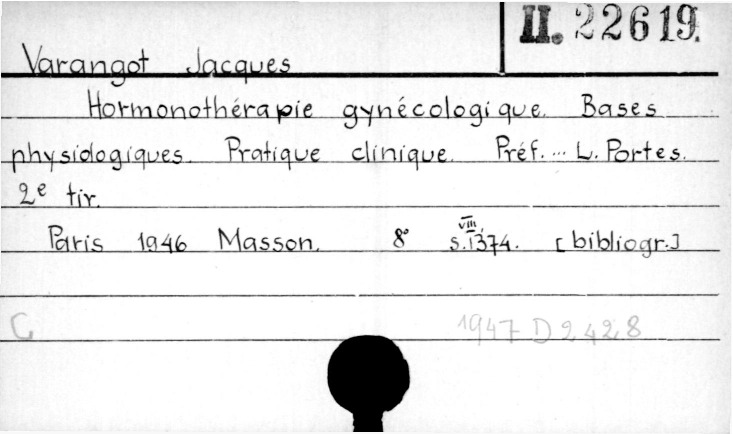 II. 22619.
Varangot Jacques
Hormonothérapie gynécologique. Bases
physiologiques. Pratique clinique. Préf. ... L. Portes.
2e tir.
Paris 1946 Masson. 8° s. VIII, 374. [bibliogr.]
C 1947 D 2428